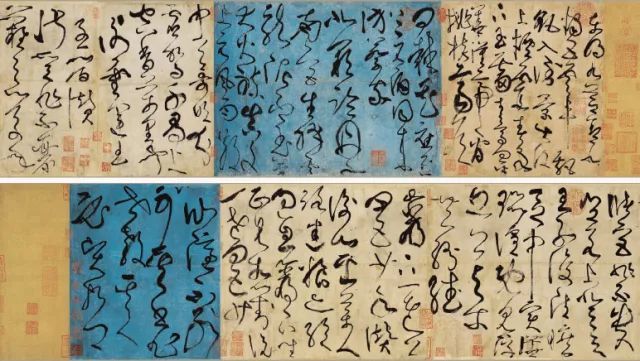 東明九芝蓋北
燭五雲車飄
飖入倒景出沒
上煙霞春泉下
玉霤青鳥向金
華漢帝看
桃核齊侯
問棗花應逐上
元酒同來
訪蔡家
北闕臨丹水
南宮生絳雲
龍泥印玉簡
大火煉真文
上元風雨散
中天歌吹分
虛駕千尋上
空香萬里聞
謝靈運王
子晉贊
淑質非不麗
難以之百年
儲宮非不貴
豈若上登天
王子復清曠
區中實嘩囂
喧既見浮丘
公與爾
共紛繙
岩下一老公
四五少年贊
衡山採藥人
路迷糧亦絕
過息岩下坐
正見相對說
一老四五少
仙隱不可別
其書非世教
其人必賢哲